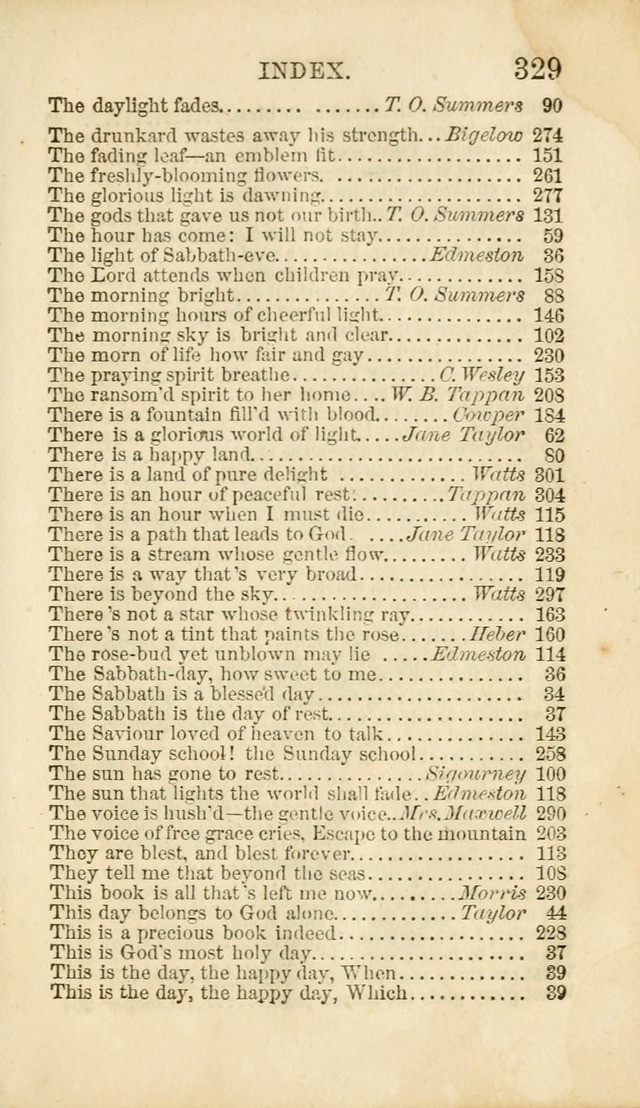 INDEX. 329
The daylight fades.......... ........T. O. Summers 90
The drunkard wastes away his strength...Bigelow 274
The fading leaf—an emblem fit................... 151
The freshly-blooming flowers. ................... 261
The glorious light is dawning..................... 277
The gods that gave us not our birth..T. O. Summers 131
The hour has come: I will not stay............... 59
The light of Sabbath-eve................Edmeston 36
The Lord attends when children pray............. 158
The morning bright................T. O. Summers 88
The morning hours of cheerful light............... 146
The morning sky is bright and clear.............. 102
The morn of life how fair and gay................ 230
The praying spirit breathe...............C. Wesley 153
The ransom'd spirit to her home....W. B. Tappan 208
There is a fountain fill'd with blood........Cowper 184
There is a glorious world of light.....Jane Taylor 62
There is a happy land............................. 80
There is a land of pure delight .............Watts 301
There is an hour of peaceful rest:.........Tappan 304
There is an hour when I must die...........Watts 115
There is a path that leads to God. ....Jane Taylor 118
There is a stream whose gentle flow.........Watts 233
There is a way that's very broad................. 119
There is beyond the sky....................Watts 297
There's not a star whose twinkling ray............ 163
There's not a tint that paints the rose.......Heber 160
The rose-bud yet unblown may lie .....Edmeston 114
The Sabbath-day, how sweet to me............... 36
The Sabbath is a blessed day..................... 34
The Sabbath is the day of rest.................... 37
The Saviour loved of heaven to talk.............. 143
The Sunday school! the Sunday school........... 258
The sun has gone to rest...............Sigourney 100
The sun that lights the world shall fade..Edmeston 118
The voice is hush'd—the gentle voice..Mrs. Maxwell 290
The voice of free grace cries, Escape to the mountain 203
They are blest, and blest forever.................. 113
They tell me that beyond the seas................ 108
This book is all that's left me now.........Morris 230
This day belongs to God alone.............Taylor 44
This is a precious book indeed................... 228
This is God's most holy day...................... 37
This is the day, the happy day, When............. 39
This is the day, the happy day, Which............ 39